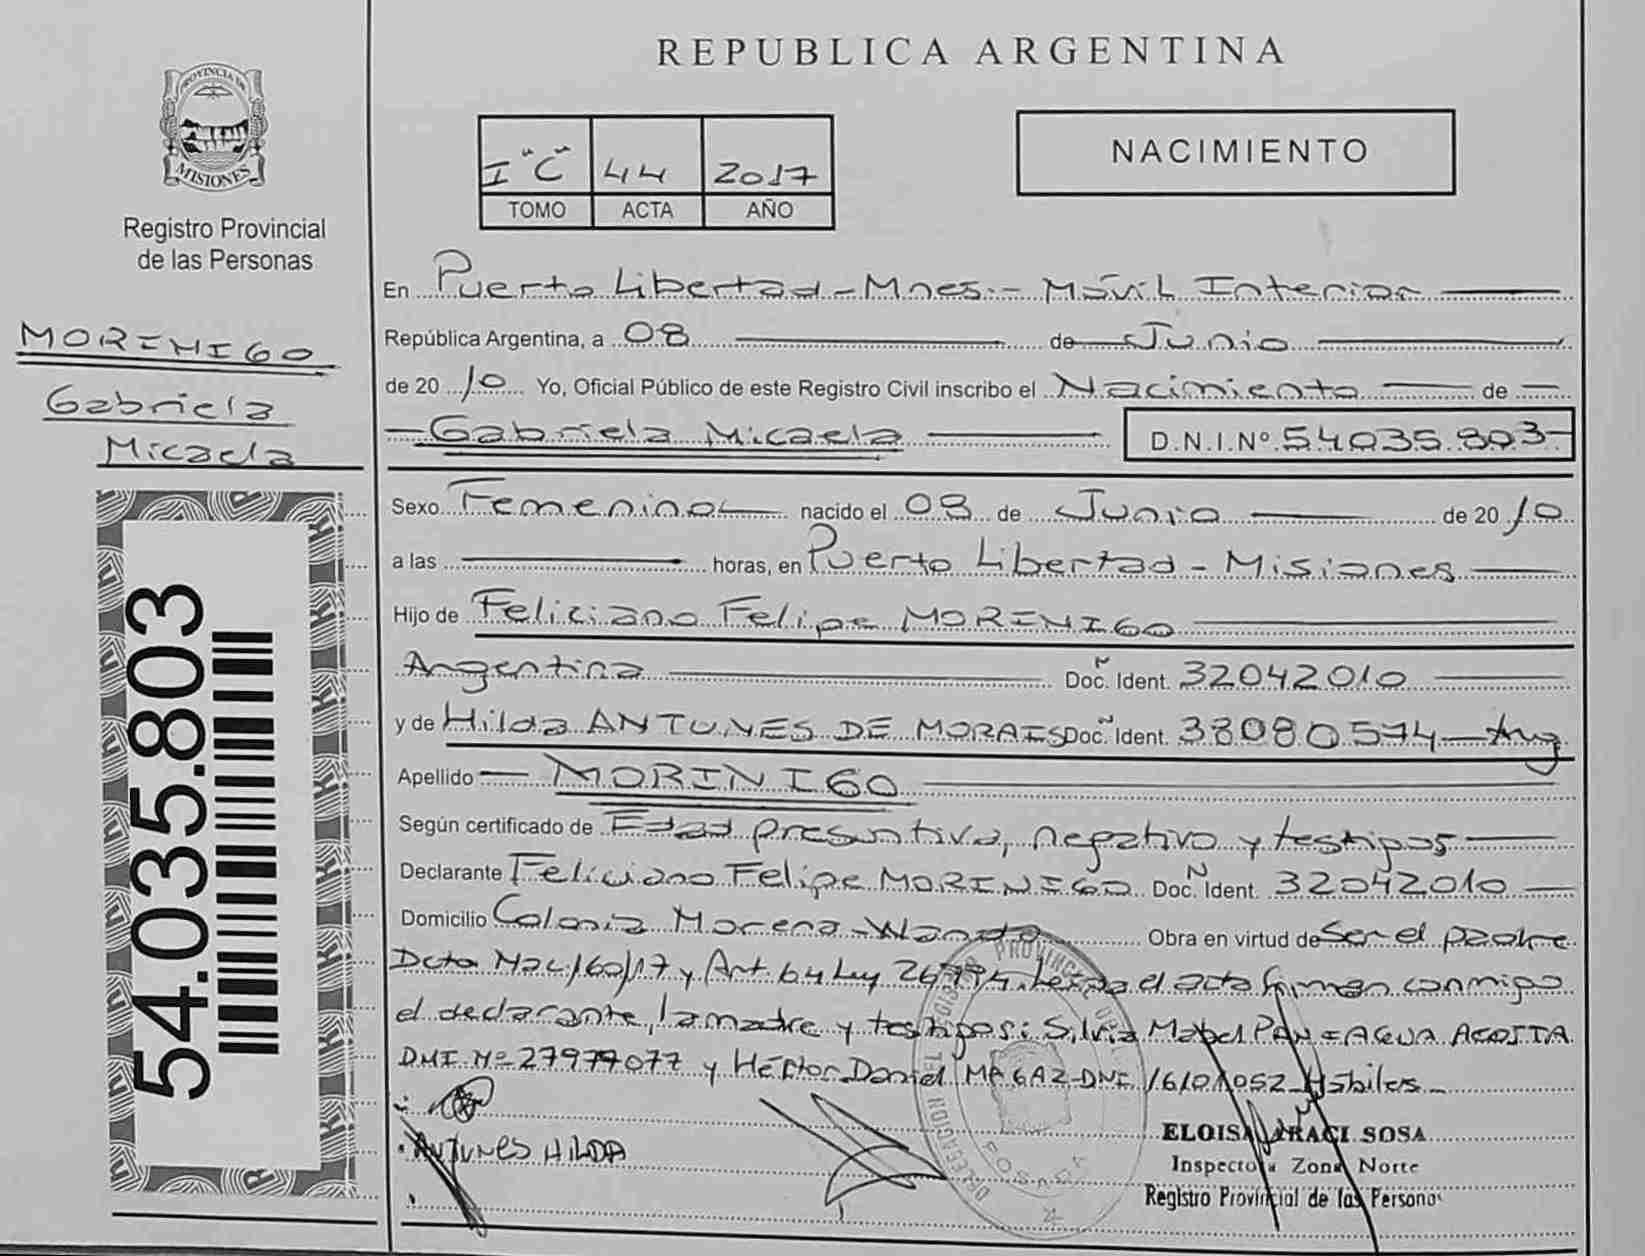 PROVINCIA DE
MISIONES
Registro Provincial
de las Personas
MORINIGO
Gabriela
Micaela
54.035.803
REPUBLICA ARGENTINA
I "C" 44 2017
TOMO ACTA AÑO
NACIMIENTO
En Puerto Libertad - Mnes. - Móvil Interior
República Argentina, a 08 de Junio
de 20 10 Yo, Oficial Público de este Registro Civil inscribo el Nacimiento de
Gabriela Micaela D.N.I.Nº 54035.803
Sexo Femenino nacido el 08 de Junio de 20 10
a las horas, en Puerto Libertad - Misiones
Hijo de Feliciano Felipe MORINIGO
Argentina Doc. Ident. 32042010
y de Hilda ANTUNES DE MORAES Doc. Ident. 38080574 - Arg
Apellido MORINIGO
Según certificado de Edad presuntiva, negativo y testigos
Declarante Feliciano Felipe MORINIGO Doc. Ident. 32042010
Domicilio Colonia Morena - Wanda Obra en virtud de Ser el padre
Dcto Nac/60/17 y Art. 64 Ley 26994. Leída el acta firman conmigo
el declarante, la madre y testigos: Silvia Mabel PANIAGUA ACOSTA
DNI Nº 27977077 y Héctor Daniel MAGAZ - DNI 16101052 Hábiles
ANTUNES HILDA
ELOISA ARACI SOSA
Inspectora Zona Norte
Registro Provincial de las Personas